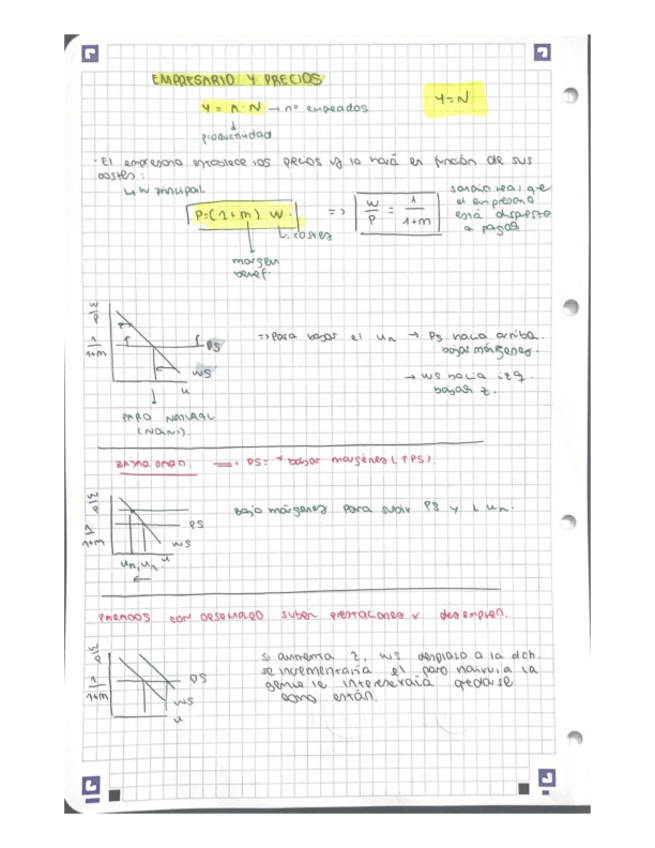 EMPRESARIO Y PRECIOS
Y = A · N → nº empeados
Y=N
productividad
· El empresario establece los precios y lo hará en función de sus
costes:
↳ W principal.
P=(1+m) · W.
=>
W/P = 1/1+m
salario real que
el empresario
está dispuesto
a pagar
↳ costes
margen
benef.
W/P
1/1+m
PS
WS
u
PARO NATURAL
(NAIRU).
=> Para bajar el un → PS hacia arriba.
bajar márgenes.
→ WS hacia izq.
bajar z.
=> PS: * bajar margenes (↑PS).
W/P
1/1+m
PS
WS
un, un u
Bajo márgenes para subir PS y ↓ un.
con desempleo suben prestaciones x desemplen.
W/P
1/1+m
PS
WS
u
Si aumenta z, WS desplaza a la dch.
se incrementaría el paro natural a la
gente le interesaría quedarse
como están.